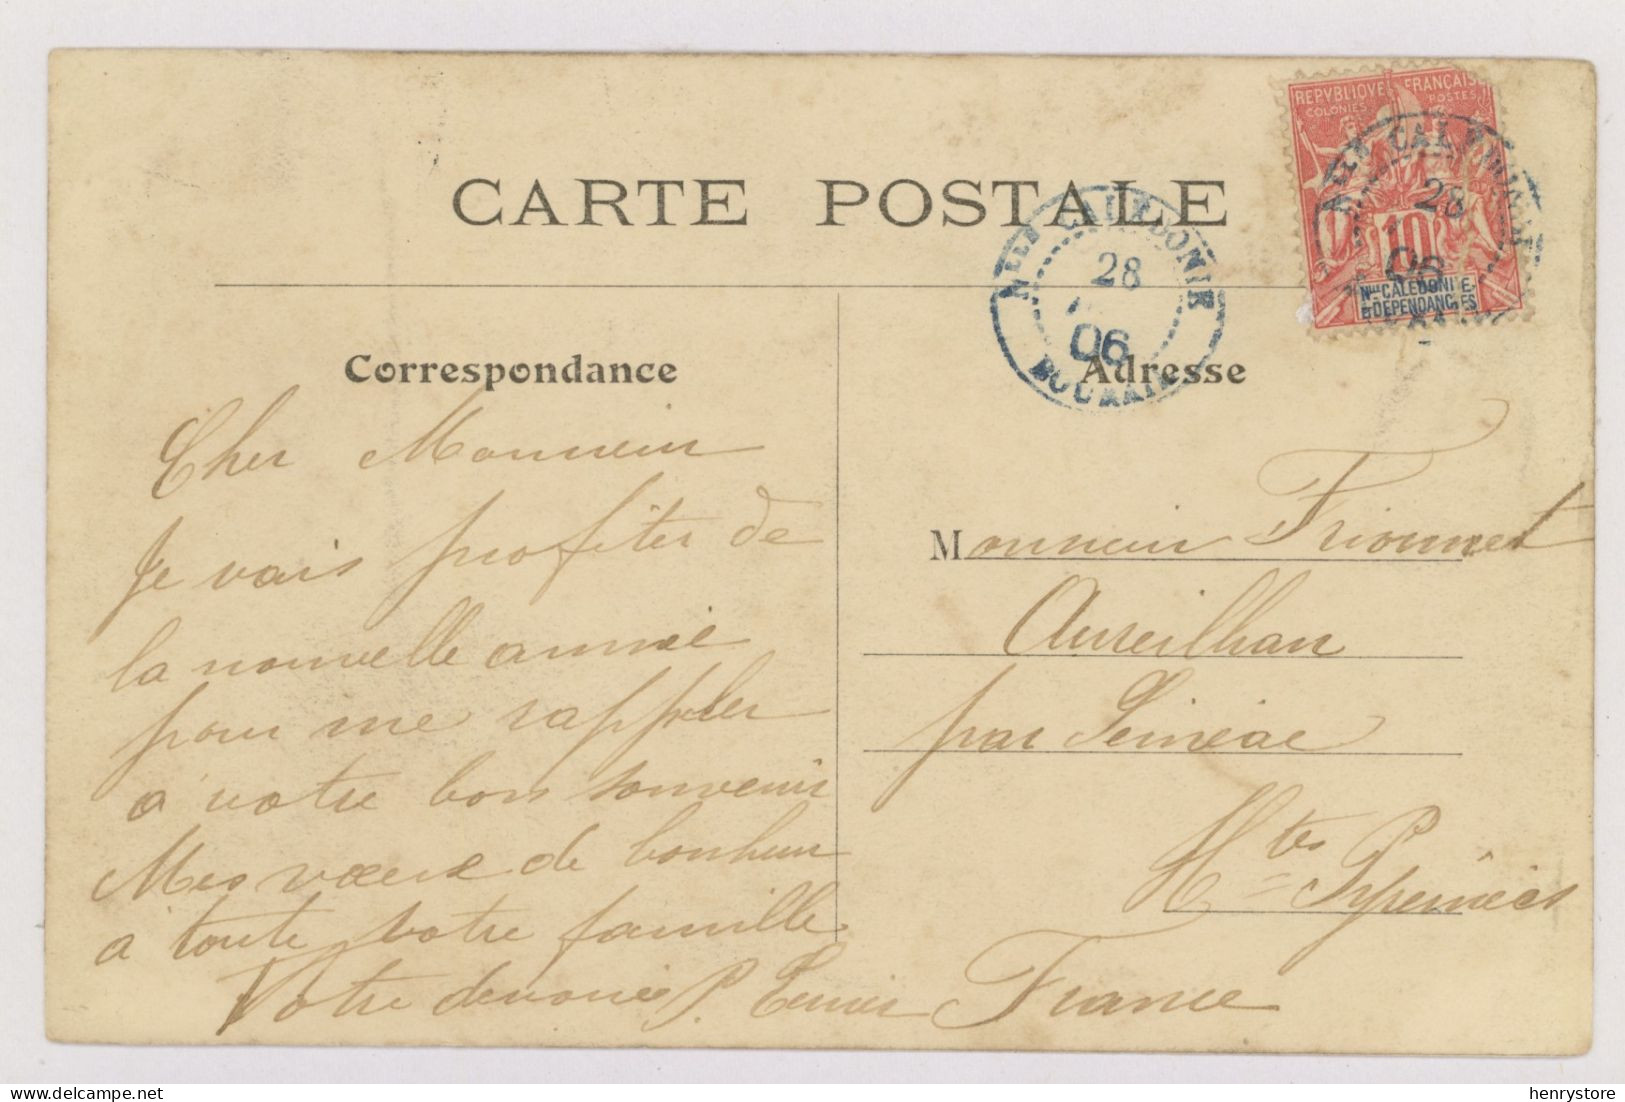 CARTE POSTALE
REPVBLIQVE FRANÇAISE
COLONIES POSTES
10
Nlle CALÉDONIE
ET DÉPENDANCES
Nlle CALÉDONIE
28
06
Nlle CALÉDONIE
28
06
BOURAIL
Correspondance
Adresse
Cher Monsieur
Je vais profiter de
la nouvelle année
pour me rappeler
à votre bon souvenir
Mes voeux de bonheur
à toute votre famille.
Votre dévoué P.
Monsieur Frionnet
Aureilhan
par Séméac
Htes Pyrénées
France
delcampe.net
henrystore